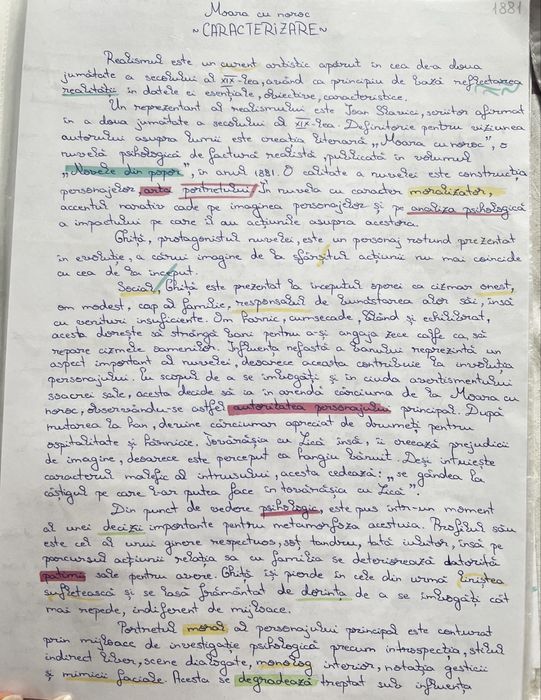 Moara cu noroc
1881
~CARACTERIZARE~
Realismul este un curent artistic apărut în cea de-a doua
jumătate a secolului al XIX-lea, având ca principiu de bază reflectarea
realității în datele ei esențiale, obiective, caracteristice.
Un reprezentant al realismului este Ioan Slavici, scriitor afirmat
în a doua jumătate a secolului al XIX-lea. Definitorie pentru viziunea
autorului asupra lumii este creația literară „Moara cu noroc", o
nuvelă psihologică de factură realistă, publicată în volumul
„Novele din popor", în anul 1881. O calitate a nuvelei este construcția
personajelor, arta portretului. În nuvela cu caracter moralizator,
accentul narativ cade pe imaginea personajelor și pe analiza psihologică
a impactului pe care îl au acțiunile asupra acestora.
Ghiță, protagonistul nuvelei, este un personaj rotund prezentat
în evoluție, a cărui imagine de la sfârșitul acțiunii nu mai coincide
cu cea de la început.
Social, Ghiță este prezentat la începutul operei ca cizmar onest,
om modest, cap al familie, responsabil de bunăstarea alor săi, însă
cu venituri insuficiente. Om harnic, cumsecade, blând și echilibrat,
acesta dorește să strângă bani pentru a-și angaja zece calfe ca, să
repare cizmele oamenilor. Influența nefastă a banului reprezintă un
aspect important al nuvelei, deoarece aceasta contribuie la involuția
personajului. În scopul de a se îmbogăți și în ciuda avertismentului
soacrei sale, acesta decide să ia în arendă cârciuma de la Moara cu
noroc, observându-se astfel autoritatea personajului principal. După
mutarea la han, devine cârciumar apreciat de drumeți pentru
ospitalitate și hărnicie. Tovărășia cu Lică însă, îi creează prejudicii
de imagine, deoarece este perceput ca hangiu bănuit. Deși intuiește
caracterul malefic al intrusului, acesta cedează: „se gândea la
câștigul pe care l-ar putea face în tovărășia cu Lică".
Din punct de vedere psihologic, este pus într-un moment
al unei decizii importante pentru metamorfoza acestuia. Profilul său
este cel al unui ginere respectuos, soț tandru, tată iubitor, însă pe
parcursul acțiunii relația sa cu familia se deteriorează datorită
patimii sale pentru avere. Ghiță își pierde în cele din urmă liniștea
sufletească și se lasă frământat de dorința de a se îmbogăți cât
mai repede, indiferent de mijloace.
Portretul moral al personajului principal este conturat
prin mijloace de investigație psihologică precum introspecția, stilul
indirect liber, scene dialogate, monolog interior, notația gesticii
și mimicii faciale. Acesta se degradează treptat sub influența